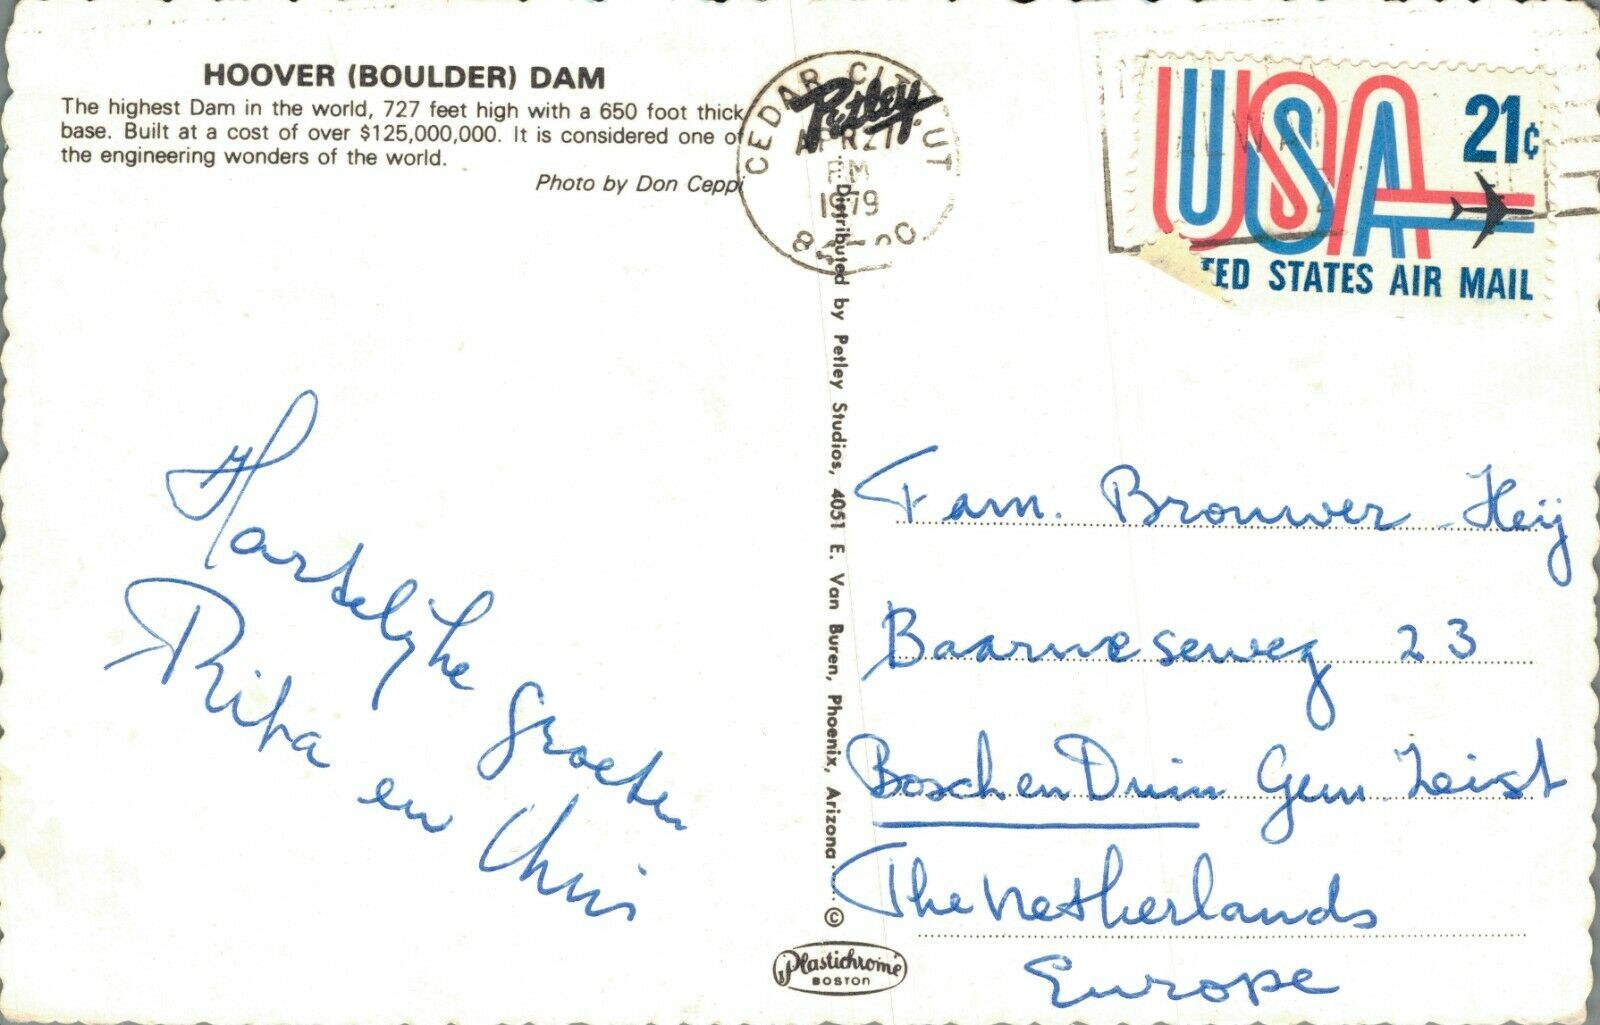 HOOVER (BOULDER) DAM
The highest Dam in the world, 727 feet high with a 650 foot thick
base. Built at a cost of over $125,000,000. It is considered one of
the engineering wonders of the world.
Photo by Don Ceppi
Hartelijke groeten
Rita en Chris
CEDAR CITY UT
APR 21
PM
1979
Petley
Distributed by Petley Studios, 4051 E. Van Buren, Phoenix, Arizona
©
Plastichrome
BOSTON
USA 21¢
TED STATES AIR MAIL
Fam. Brouwer - Heij
Baarnseweg 23
Bosch en Duin Gem. Zeist
The Netherlands
Europe